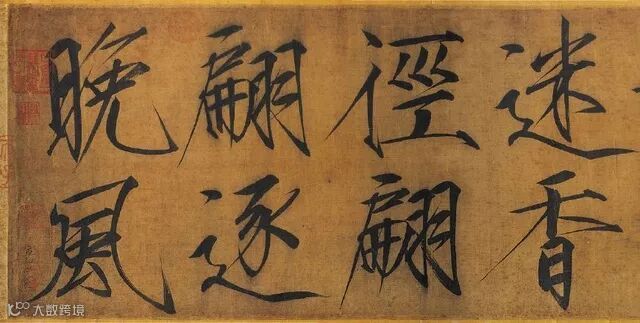 迷香
徑翩
翩逐
晚風
大数跨境